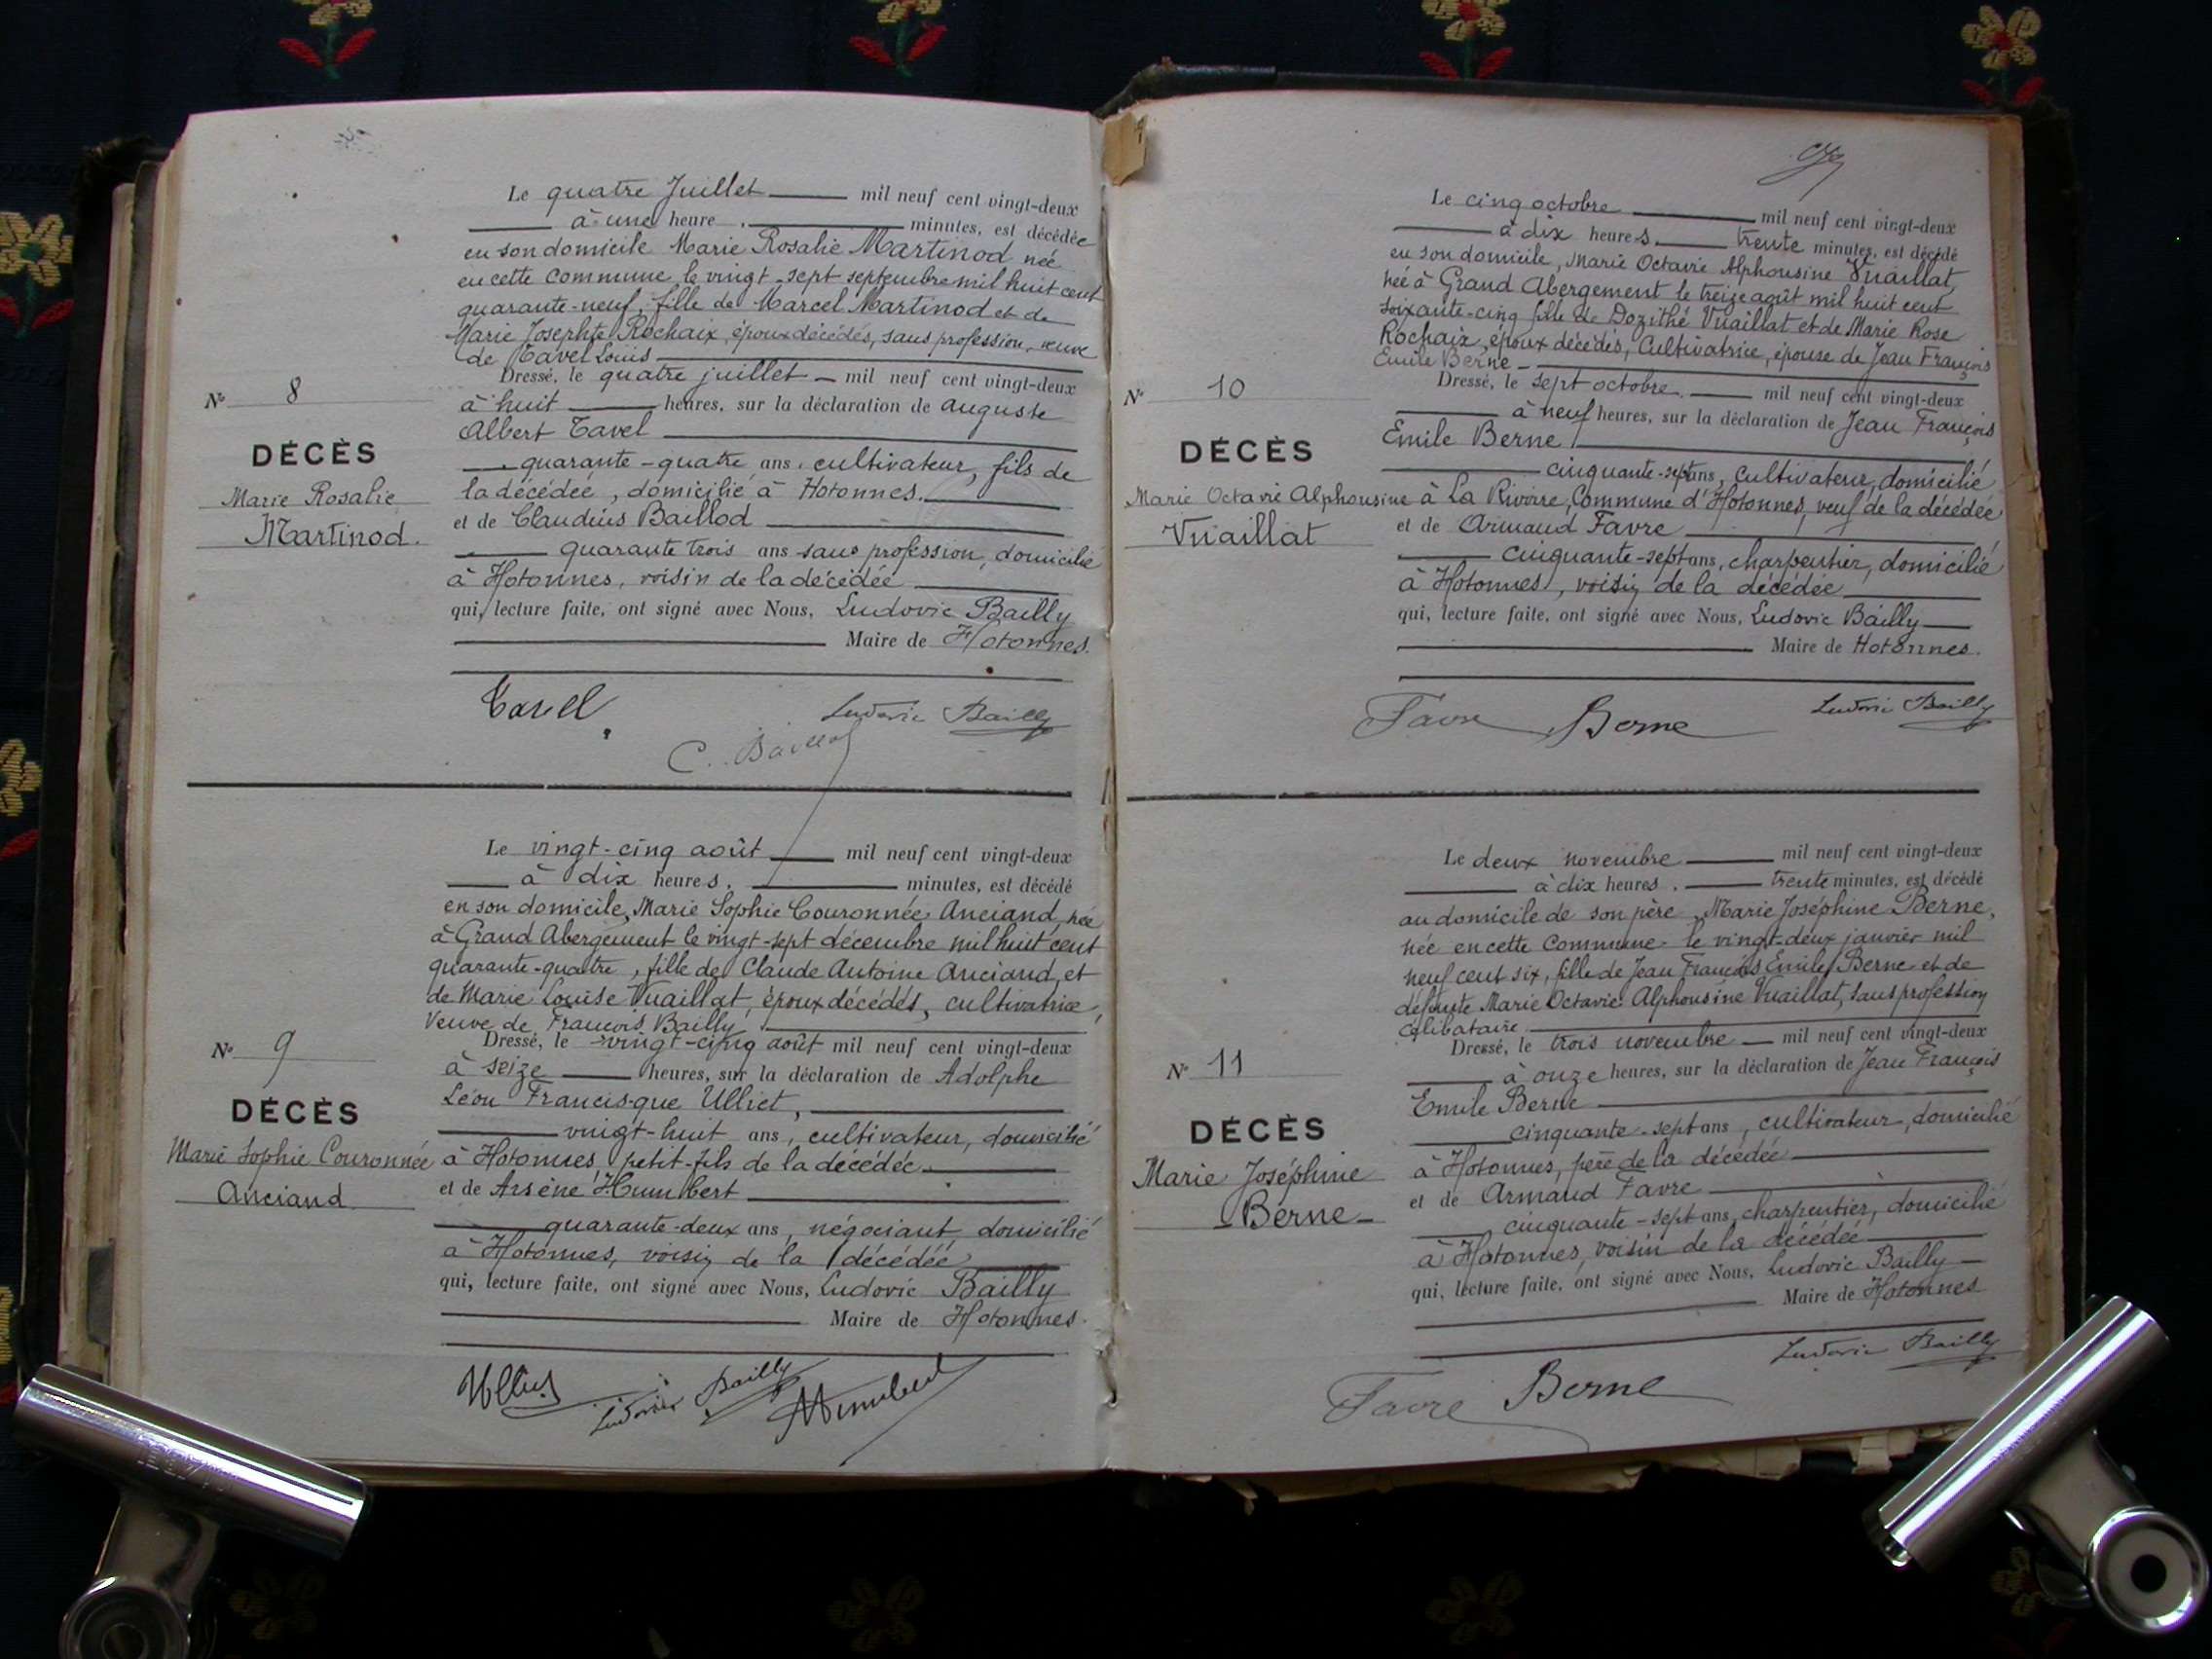 Le quatre Juillet mil neuf cent vingt-deux
à une heure minutes, est décédée
en son domicile Marie Rosalie Martinod née
en cette commune le vingt-sept septembre mil huit cent
quarante-neuf, fille de Marcel Martinod et de
Marie Josephte Rochaix, époux décédés, sans profession, veuve
de Tavel Louis
Dressé, le quatre juillet mil neuf cent vingt-deux
à huit heures, sur la déclaration de Auguste
Albert Tavel
quarante-quatre ans, cultivateur, fils de
la décédée, domicilié à Hotonnes.
et de Claudius Baillod
quarante trois ans sans profession, domicilié
à Hotonnes, voisin de la décédée
qui, lecture faite, ont signé avec Nous, Ludovic Bailly
Maire de Hotonnes.
N° 8
DÉCÈS
Marie Rosalie
Martinod.
Tavel
Ludovic Bailly
C. Baillod
Le vingt-cinq août mil neuf cent vingt-deux
à dix heures. minutes, est décédé
en son domicile, Marie Sophie Couronnée Anciand, née
à Grand Abergement le vingt-sept décembre mil huit cent
quarante-quatre, fille de Claude Antoine Anciand, et
de Marie Louise Vuaillat, époux décédés, cultivatrice,
Veuve de François Bailly
Dressé, le vingt-cinq août mil neuf cent vingt-deux
à seize heures, sur la déclaration de Adolphe
Léon Francisque Ulliet,
vingt-huit ans, cultivateur, domicilié
à Hotonnes, petit-fils de la décédée
et de Arsène Humbert
quarante-deux ans, négociant, domicilié
à Hotonnes, voisin de la décédée,
qui, lecture faite, ont signé avec Nous, Ludovic Bailly
Maire de Hotonnes.
N° 9
DÉCÈS
Marie Sophie Couronnée
Anciand
Ulliet
Ludovic Bailly
AHumbert
Le cinq octobre mil neuf cent vingt-deux
à dix heures. trente minutes, est décédé
en son domicile, Marie Octavie Alphonsine Vuaillat,
née à Grand Abergement le treize août mil huit cent
soixante-cinq fille de Dozithé Vuaillat et de Marie Rose
Rochaix, époux décédés, Cultivatrice, épouse de Jean François
Emile Berne
Dressé, le sept octobre. mil neuf cent vingt-deux
à neuf heures, sur la déclaration de Jean François
Emile Berne
cinquante-sept ans, Cultivateur, domicilié
à La Rivoire, Commune d'Hotonnes, veuf de la décédée
et de Armand Favre
cinquante-sept ans, charpentier, domicilié
à Hotonnes, voisin de la décédée
qui, lecture faite, ont signé avec Nous, Ludovic Bailly
Maire de Hotonnes.
N° 10
DÉCÈS
Marie Octavie Alphonsine
Vuaillat
Favre Berne
Ludovic Bailly
Le deux novembre mil neuf cent vingt-deux
à dix heures. trente minutes, est décédé
au domicile de son père, Marie Joséphine Berne,
née en cette Commune le vingt-deux janvier mil
neuf cent six, fille de Jean François Emile Berne et de
défunte Marie Octavie Alphonsine Vuaillat, sans profession
célibataire
Dressé, le trois novembre mil neuf cent vingt-deux
à onze heures, sur la déclaration de Jean François
Emile Berne
cinquante-sept ans, cultivateur, domicilié
à Hotonnes, père de la décédée
et de Armand Favre
cinquante-sept ans, charpentier, domicilié
à Hotonnes, voisin de la décédée
qui, lecture faite, ont signé avec Nous, Ludovic Bailly
Maire de Hotonnes
N° 11
DÉCÈS
Marie Joséphine
Berne
Ludovic Bailly
Favre Berne